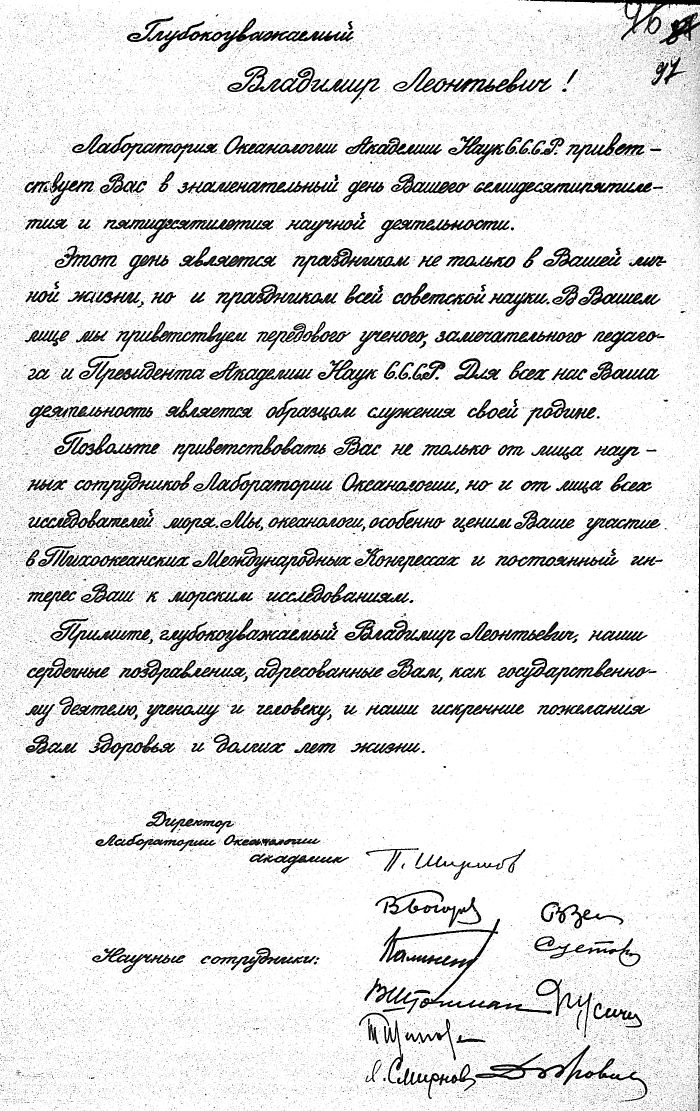 96
97
Глубокоуважаемый
Владимир Леонтьевич!
Лаборатория Океанологии Академии Наук С.С.С.Р. привет-
ствует Вас в знаменательный день Вашего семидесятипятиле-
тия и пятидесятилетия научной деятельности.
Этот день является праздником не только в Вашей лич-
ной жизни, но и праздником всей советской науки. В Вашем
лице мы приветствуем передового ученого, замечательного педаго-
га и Президента Академии Наук С.С.С.Р. Для всех нас Ваша
деятельность является образцом служения своей родине.
Позвольте приветствовать Вас не только от лица науч-
ных сотрудников Лаборатории Океанологии, но и от лица всех
исследователей моря. Мы, океанологи, особенно ценим Ваше участие
в Тихоокеанских Международных Конгрессах и постоянный ин-
терес Ваш к морским исследованиям.
Примите, глубокоуважаемый Владимир Леонтьевич, наши
сердечные поздравления, адресованные Вам, как государственно-
му деятелю, ученому и человеку, и наши искренние пожелания
Вам здоровья и долгих лет жизни.
Директор
Лаборатории Океанологии
академик П. Ширшов
В Богоров
Научные сотрудники:
В Штокман
Я. Смирнов Добровол